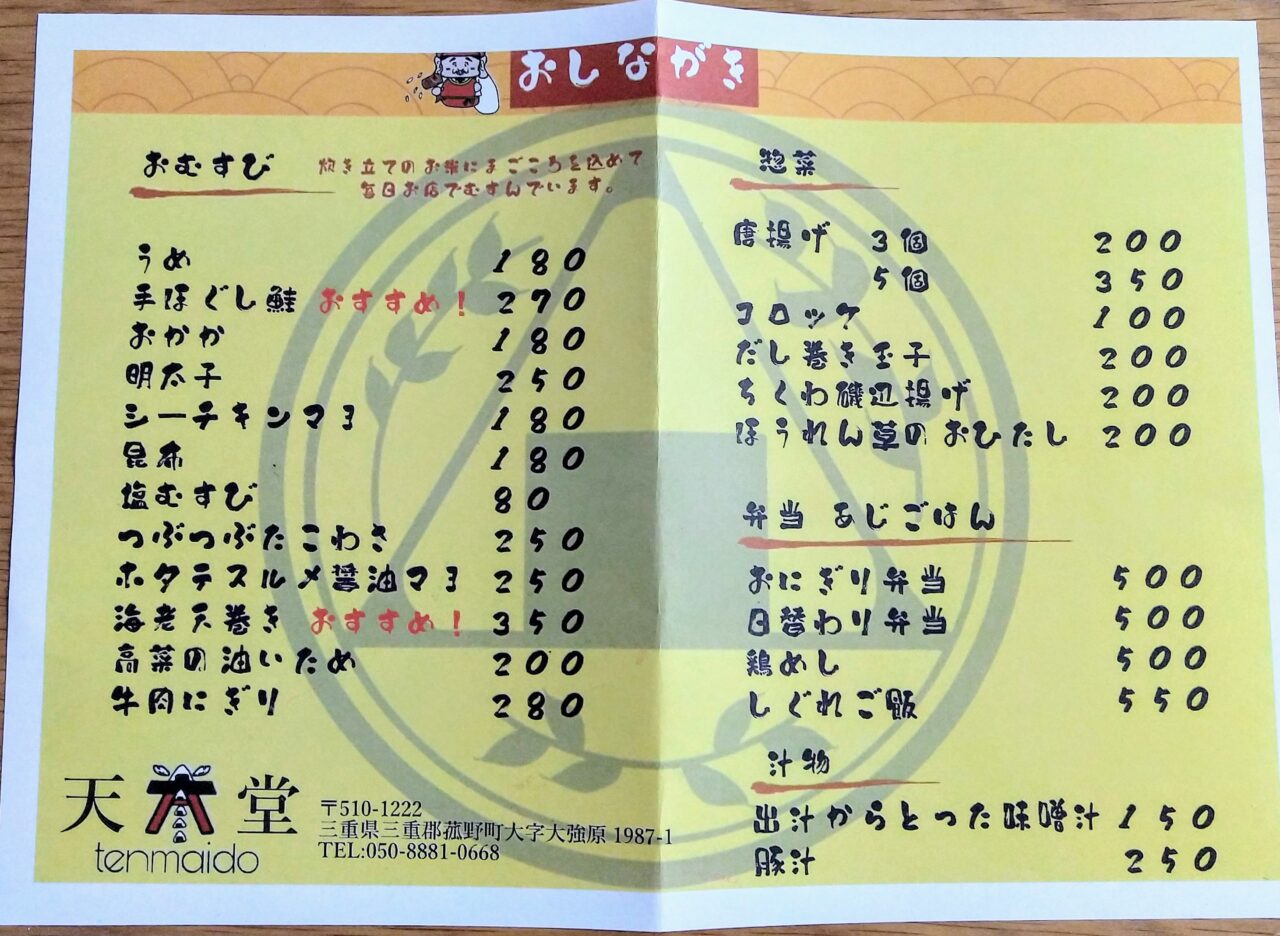 おしながき
おむすび
炊き立てのお米にまごころを込めて
毎日お店でむすんでいます。
うめ 180
手ほぐし鮭 おすすめ！ 270
おかか 180
明太子 250
シーチキンマヨ 180
昆布 180
塩むすび 80
つぶつぶたこわさ 250
ホタテスルメ醤油マヨ 250
海老天巻き おすすめ！ 350
高菜の油いため 200
牛肉にぎり 280
天 堂
tenmaido
〒510-1222
三重県三重郡菰野町大字大強原 1987-1
TEL:050-8881-0668
惣菜
唐揚げ 3個 200
5個 350
コロッケ 100
だし巻き玉子 200
ちくわ磯辺揚げ 200
ほうれん草のおひたし 200
弁当 あじごはん
おにぎり弁当 500
日替わり弁当 500
鶏めし 500
しぐれご飯 550
汁物
出汁からとった味噌汁 150
豚汁 250